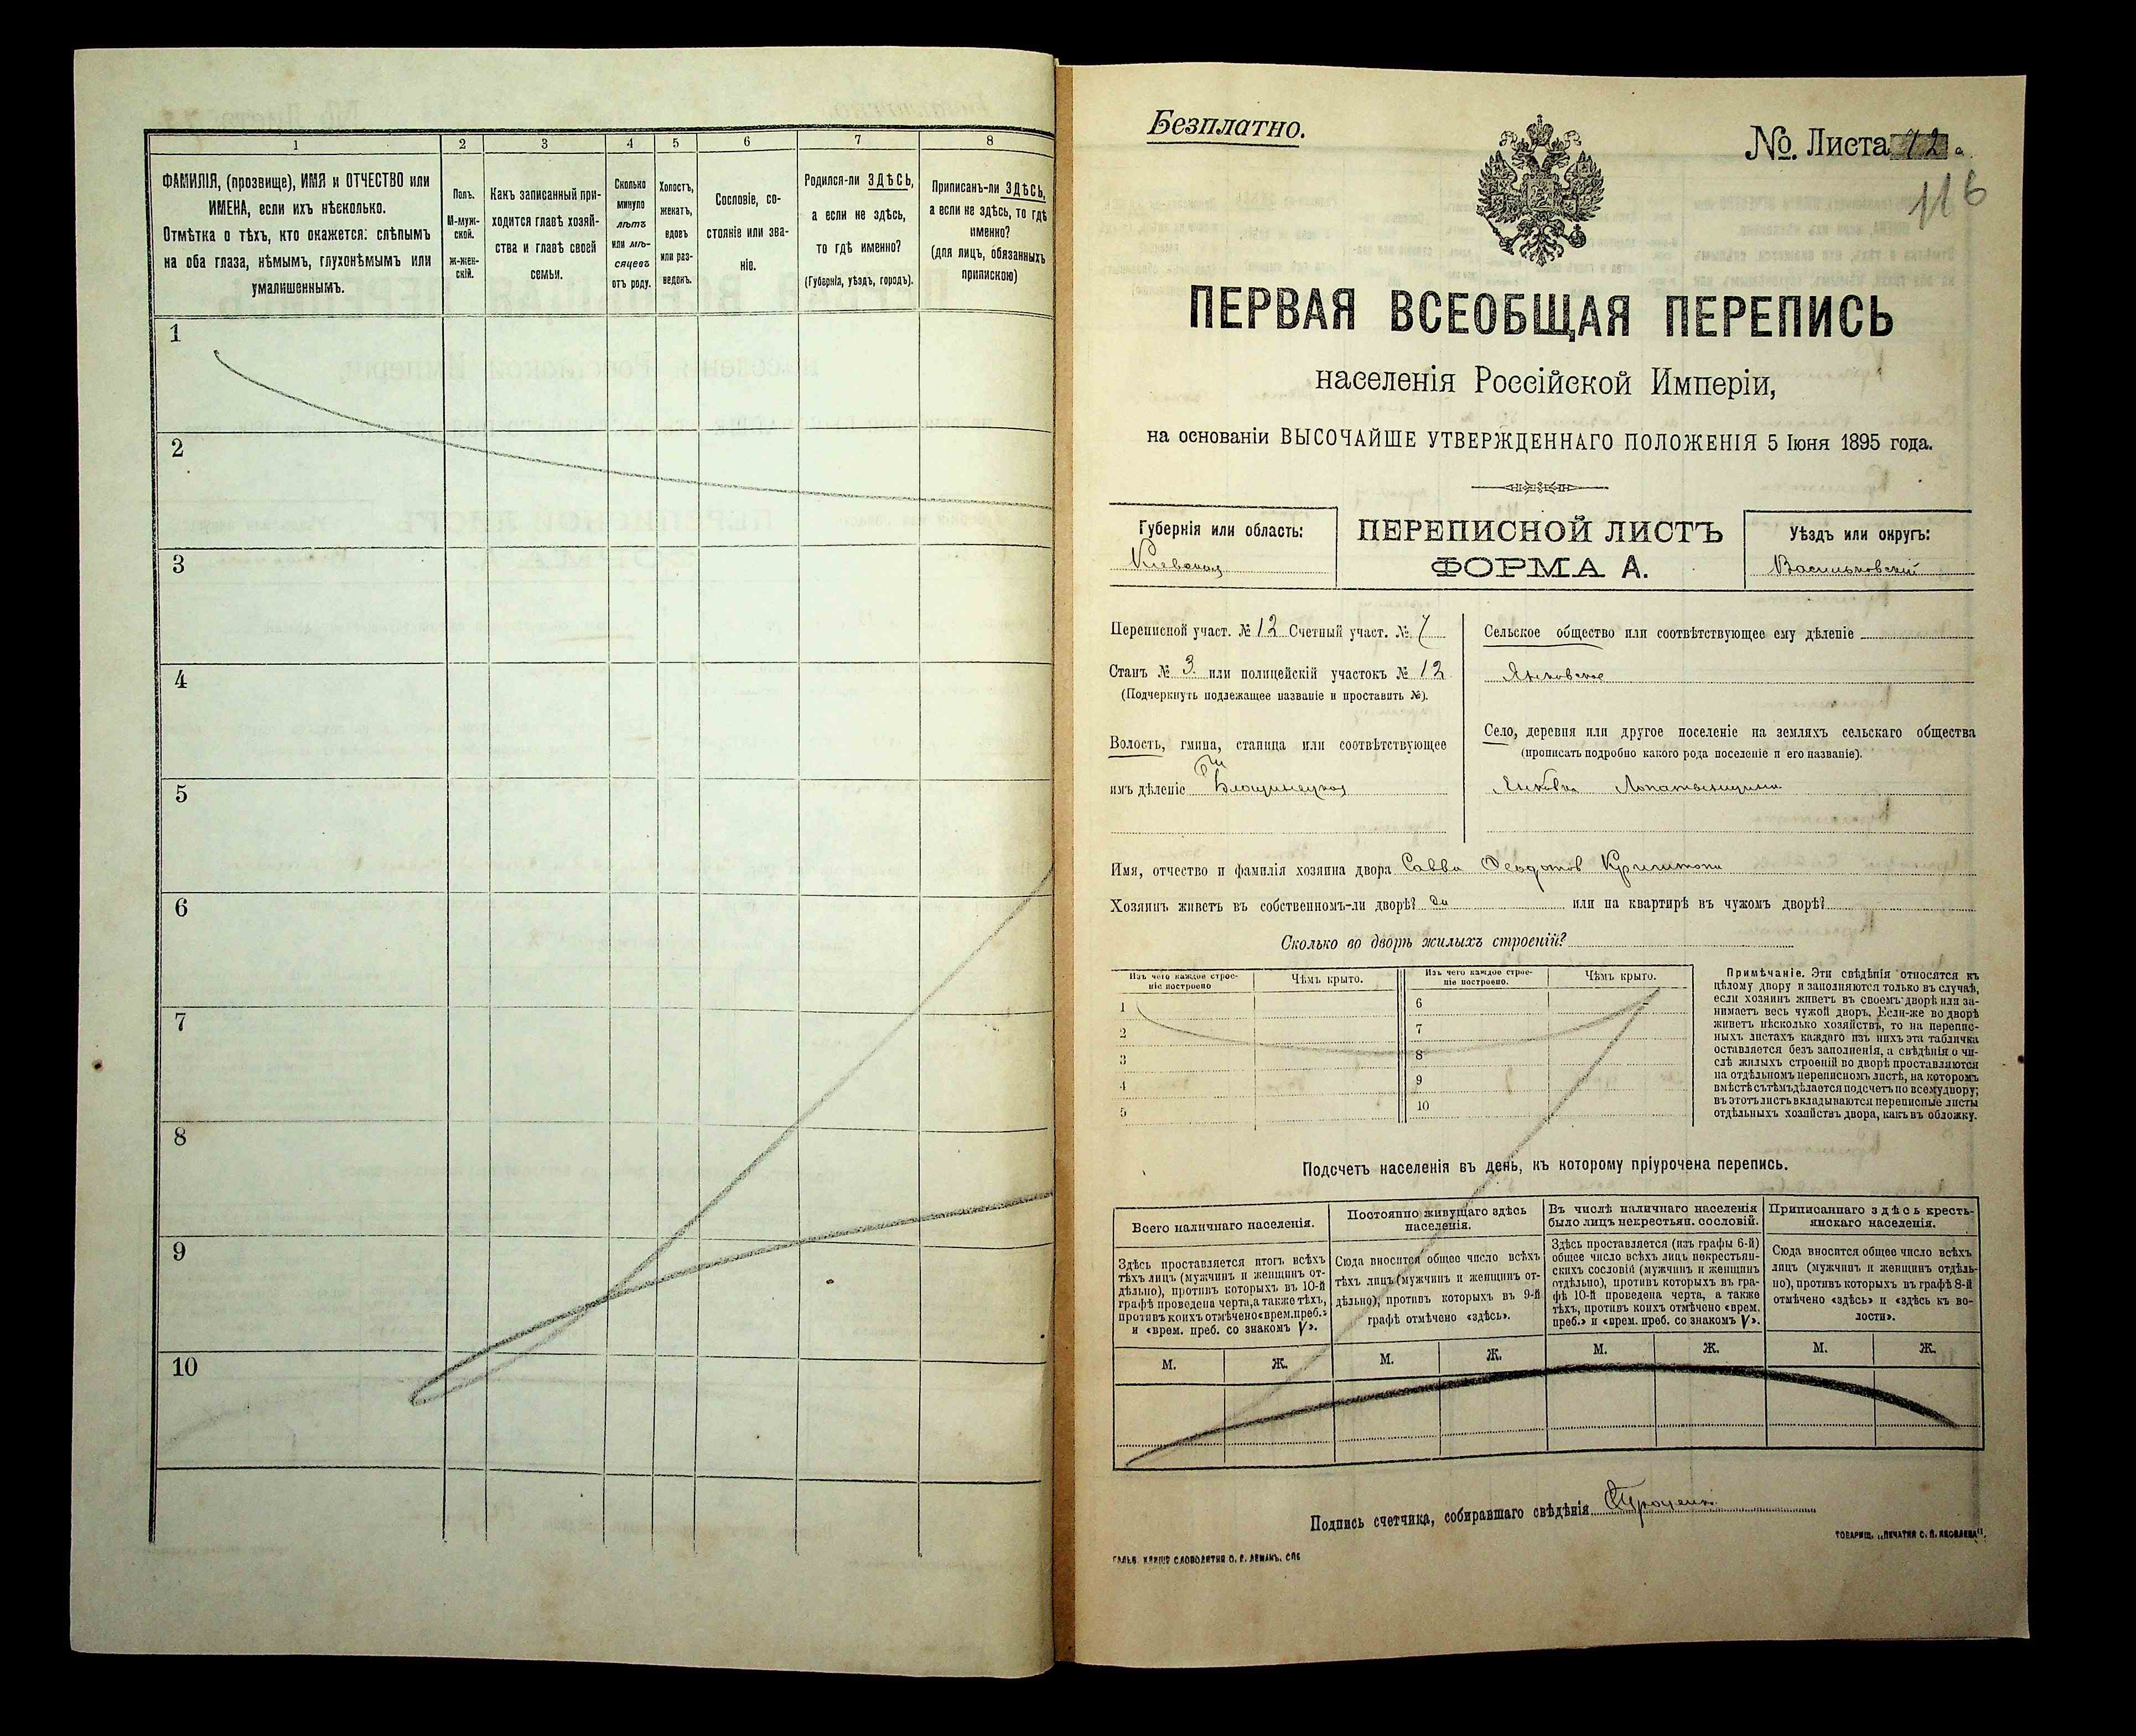 1 2 3 4 5 6 7 8
ФАМИЛІЯ, (прозвище), ИМЯ и ОТЧЕСТВО или
ИМЕНА, если ихъ нѣсколько.
Отмѣтка о тѣхъ, кто окажется: слѣпымъ
на оба глаза, нѣмымъ, глухонѣмымъ или
умалишеннымъ.
Полъ.
М-муж-
ской.
ж-жен-
скій.
Какъ записанный при-
ходится главѣ хозяй-
ства и главѣ своей
семьи.
Сколько
минуло
лѣтъ
или мѣ-
сяцевъ
отъ роду.
Холостъ,
женатъ,
вдовъ
или раз-
веденъ.
Сословіе, со-
стояніе или зва-
ніе.
Родился-ли ЗДѢСЬ,
а если не здѣсь,
то гдѣ именно?
(Губернія, уѣздъ, городъ).
Приписанъ-ли ЗДѢСЬ,
а если не здѣсь, то гдѣ
именно?
(для лицъ, обязанныхъ
припискою)
1
2
3
4
5
6
7
8
9
10
Безплатно.
№. Листа 12 а
116
ПЕРВАЯ ВСЕОБЩАЯ ПЕРЕПИСЬ
населенія Россійской Имперіи,
на основаніи ВЫСОЧАЙШЕ УТВЕРЖДЕННАГО ПОЛОЖЕНІЯ 5 Іюня 1895 года.
Губернія или область:
Кіевская
ПЕРЕПИСНОЙ ЛИСТЪ
ФОРМА А.
Уѣздъ или округъ:
Васильковскій
Переписной участ. № 12 Счетный участ. № 7
Станъ № 3. или полицейскій участокъ № 12
(Подчеркнуть подлежащее названіе и проставить №).
Волость, гмина, станица или соотвѣтствующее
имъ дѣленіе Блощинецкая
Сельское общество или соотвѣтствующее ему дѣленіе
Янковское
Село, деревня или другое поселеніе на земляхъ сельскаго общества
(прописать подробно какого рода поселеніе и его названіе).
Янковка Лопатинщина
Имя, отчество и фамилія хозяина двора Савва Феодотов
Хозяинъ живетъ въ собственномъ-ли дворѣ? да или на квартирѣ въ чужомъ дворѣ?
Сколько во дворѣ жилыхъ строеній?
Изъ чего каждое строе-
ніе построено
Чѣмъ крыто.
Изъ чего каждое строе-
ніе построено.
Чѣмъ крыто.
1 6
2 7
3 8
4 9
5 10
Примѣчаніе. Эти свѣдѣнія относятся къ
цѣлому двору и заполняются только въ случаѣ,
если хозяинъ живетъ въ своемъ дворѣ или за-
нимаетъ весь чужой дворъ. Если-же во дворѣ
живетъ нѣсколько хозяйствъ, то на перепис-
ныхъ листахъ каждаго изъ нихъ эта табличка
оставляется безъ заполненія, а свѣдѣнія о чи-
слѣ жилыхъ строеній во дворѣ проставляются
на отдѣльномъ переписномъ листѣ, на которомъ
вмѣстѣ съ тѣмъ дѣлается подсчетъ по всему двору;
въ этотъ листъ вкладываются переписные листы
отдѣльныхъ хозяйствъ двора, какъ въ обложку.
Подсчетъ населенія въ день, къ которому пріурочена перепись.
Всего наличнаго населенія.
Здѣсь проставляется итогъ всѣхъ
тѣхъ лицъ (мужчинъ и женщинъ от-
дѣльно), противъ которыхъ въ 10-й
графѣ проведена черта, а также тѣхъ,
противъ коихъ отмѣчено «врем. преб.»
и «врем. преб. со знакомъ V».
Постоянно живущаго здѣсь
населенія.
Сюда вносится общее число всѣхъ
тѣхъ лицъ (мужчинъ и женщинъ от-
дѣльно), противъ которыхъ въ 9-й
графѣ отмѣчено «здѣсь».
Въ числѣ наличнаго населенія
было лицъ некрестьян. сословій.
Здѣсь проставляется (изъ графы 6-й)
общее число всѣхъ лицъ некрестьян-
скихъ сословій (мужчинъ и женщинъ
отдѣльно), противъ которыхъ въ гра-
фѣ 10-й проведена черта, а также
тѣхъ, противъ коихъ отмѣчено «врем.
преб.» и «врем. преб. со знакомъ V».
Приписаннаго здѣсь кресть-
янскаго населенія.
Сюда вносится общее число всѣхъ
лицъ (мужчинъ и женщинъ отдѣль-
но), противъ которыхъ въ графѣ 8-й
отмѣчено «здѣсь» и «здѣсь въ во-
лости».
М. Ж. М. Ж. М. Ж. М. Ж.
Подпись счетчика, собиравшаго свѣдѣнія
ТОВАРИЩ. „ПЕЧАТНЯ С. П. ЯКОВЛЕВА“.
ГАЛЬВ. КЛИШЕ СЛОВОЛИТНИ О. І. ЛЕМАНЪ, СПБ